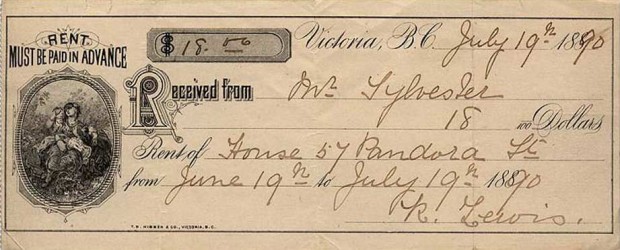 RENT
MUST BE PAID IN ADVANCE
$ 18.00
Victoria, B.C. July 19th 1890
Received from Mr. Sylvester
18 /100 Dollars
Rent of House 57 Pandora St
from June 19th to July 19th 1890
R. Lewis.
T. N. HIBBEN & CO., VICTORIA, B.C.